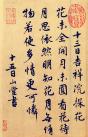 十三日吉祥院探花
花未全開月未圓看花待
月思依然明知花月無情
物若使多情更可憐
十五日山堂書